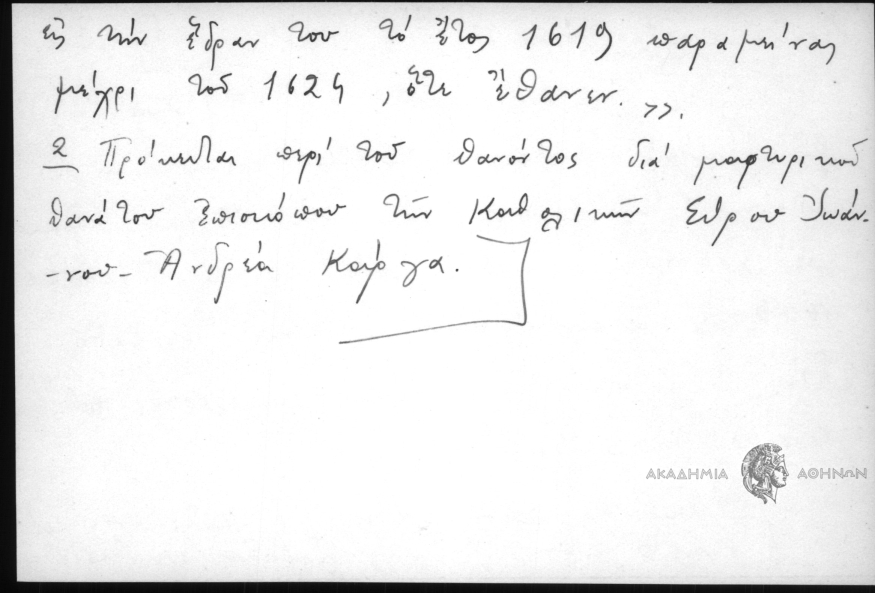 εἰς τήν ἕδραν του τό ἔτος 1619 παραμείνας
μέχρι τοῦ 1624, ὅτε ἔθανεν. >>.
2 Πρόκειται περί τοῦ θανόντος διά μαρτυρικοῦ
θανάτου ἐπισκόπου τῶν Καθολικῶν Σύρου Ἰωάν-
-νου- Ἀνδρέα Κάργα.
ΑΚΑΔΗΜΙΑ ΑΘΗΝΩΝ